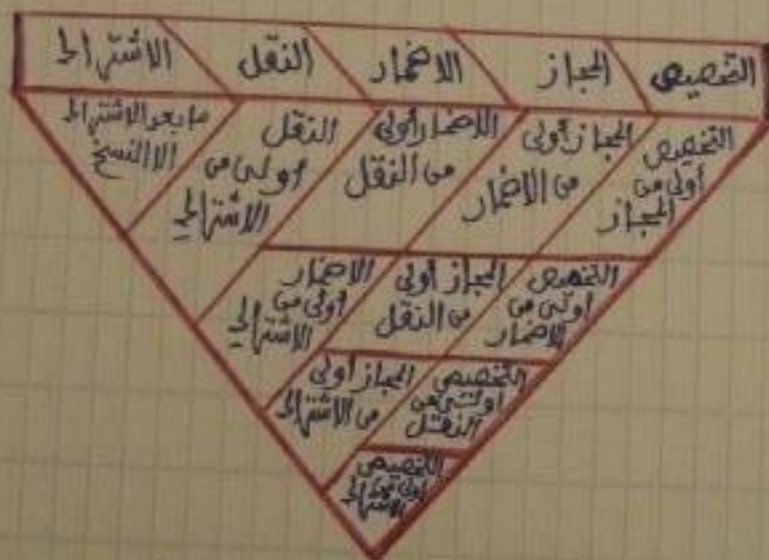 التخصيص
المجاز
الاضمار
النقل
الاشتراك
التخصيص
أولى من
المجاز
المجاز أولى
من الاضمار
الاضمار أولى
من النقل
النقل
أولى من
الاشتراك
ما بعد الاشتراك
الا النسخ
التخصيص
أولى من
الاضمار
المجاز أولى
من النقل
الاضمار
أولى من
الاشتراك
التخصيص
أولى من
النقل
المجاز أولى
من الاشتراك
التخصيص
أولى من
الاشتراك